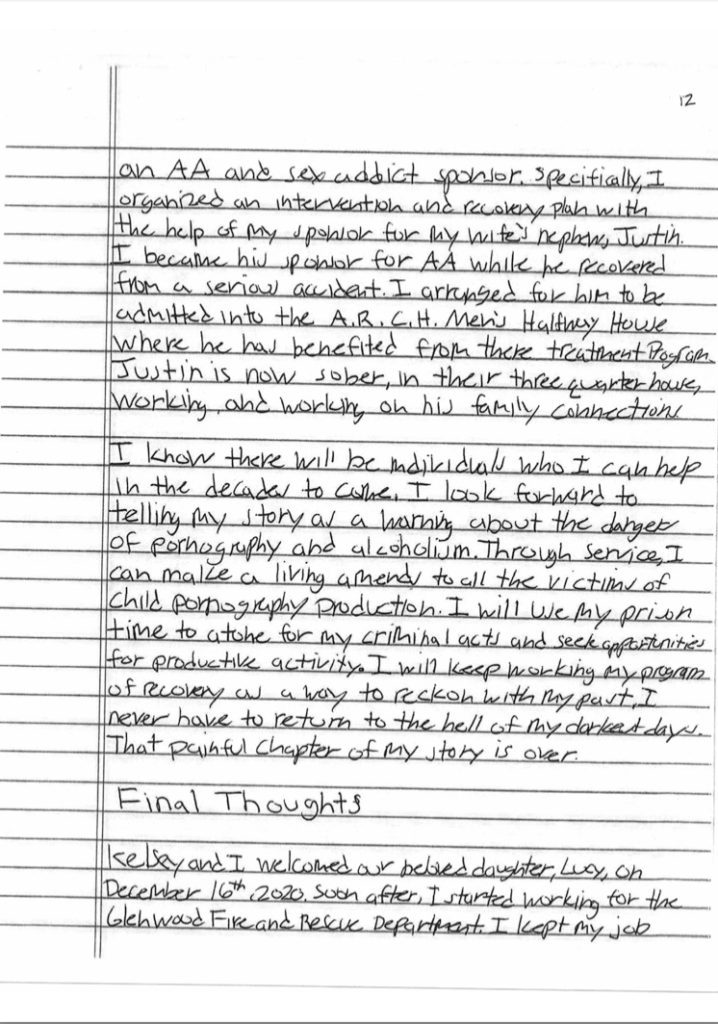 12
an AA and sex addict sponsor. Specifically, I
organized an intervention and recovery plan with
the help of my sponsor for my wife's nephew, Justin.
I became his sponsor for AA while he recovered
from a serious accident. I arranged for him to be
admitted into the A.R.C.H. Men's Halfway House
where he has benefited from there treatment Program.
Justin is now sober, in their three quarter house,
working, and working on his family connections
I know there will be individuals who I can help
in the decades to come. I look forward to
telling my story as a warning about the dangers
of pornography and alcoholism. Through service, I
can make a living amends to all the victims of
child pornography production. I will use my prison
time to atone for my criminal acts and seek opportunities
for productive activity. I will keep working my program
of recovery as a way to reckon with my past. I
never have to return to the hell of my darkest days.
That painful chapter of my story is over.
Final Thoughts
Kelsey and I welcomed our beloved daughter, Lucy, on
December 16th, 2020. Soon after, I started working for the
Glenwood Fire and Rescue Department. I kept my job